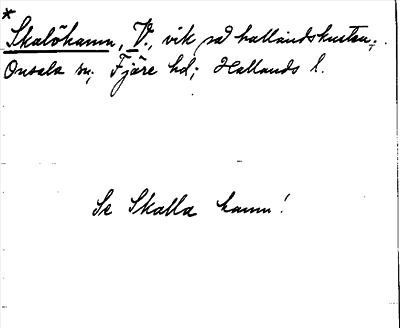 *
Skalöhamn, V., vik vid hallandskusten;
Onsala sn; Fjäre hd; Hallands l.
Se Skalla hamn!